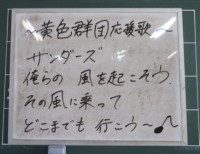 ～黄色群団応援歌～
サンダーズ
俺らの 風を起こそう
その風に乗って
どこまでも 行こう～♪